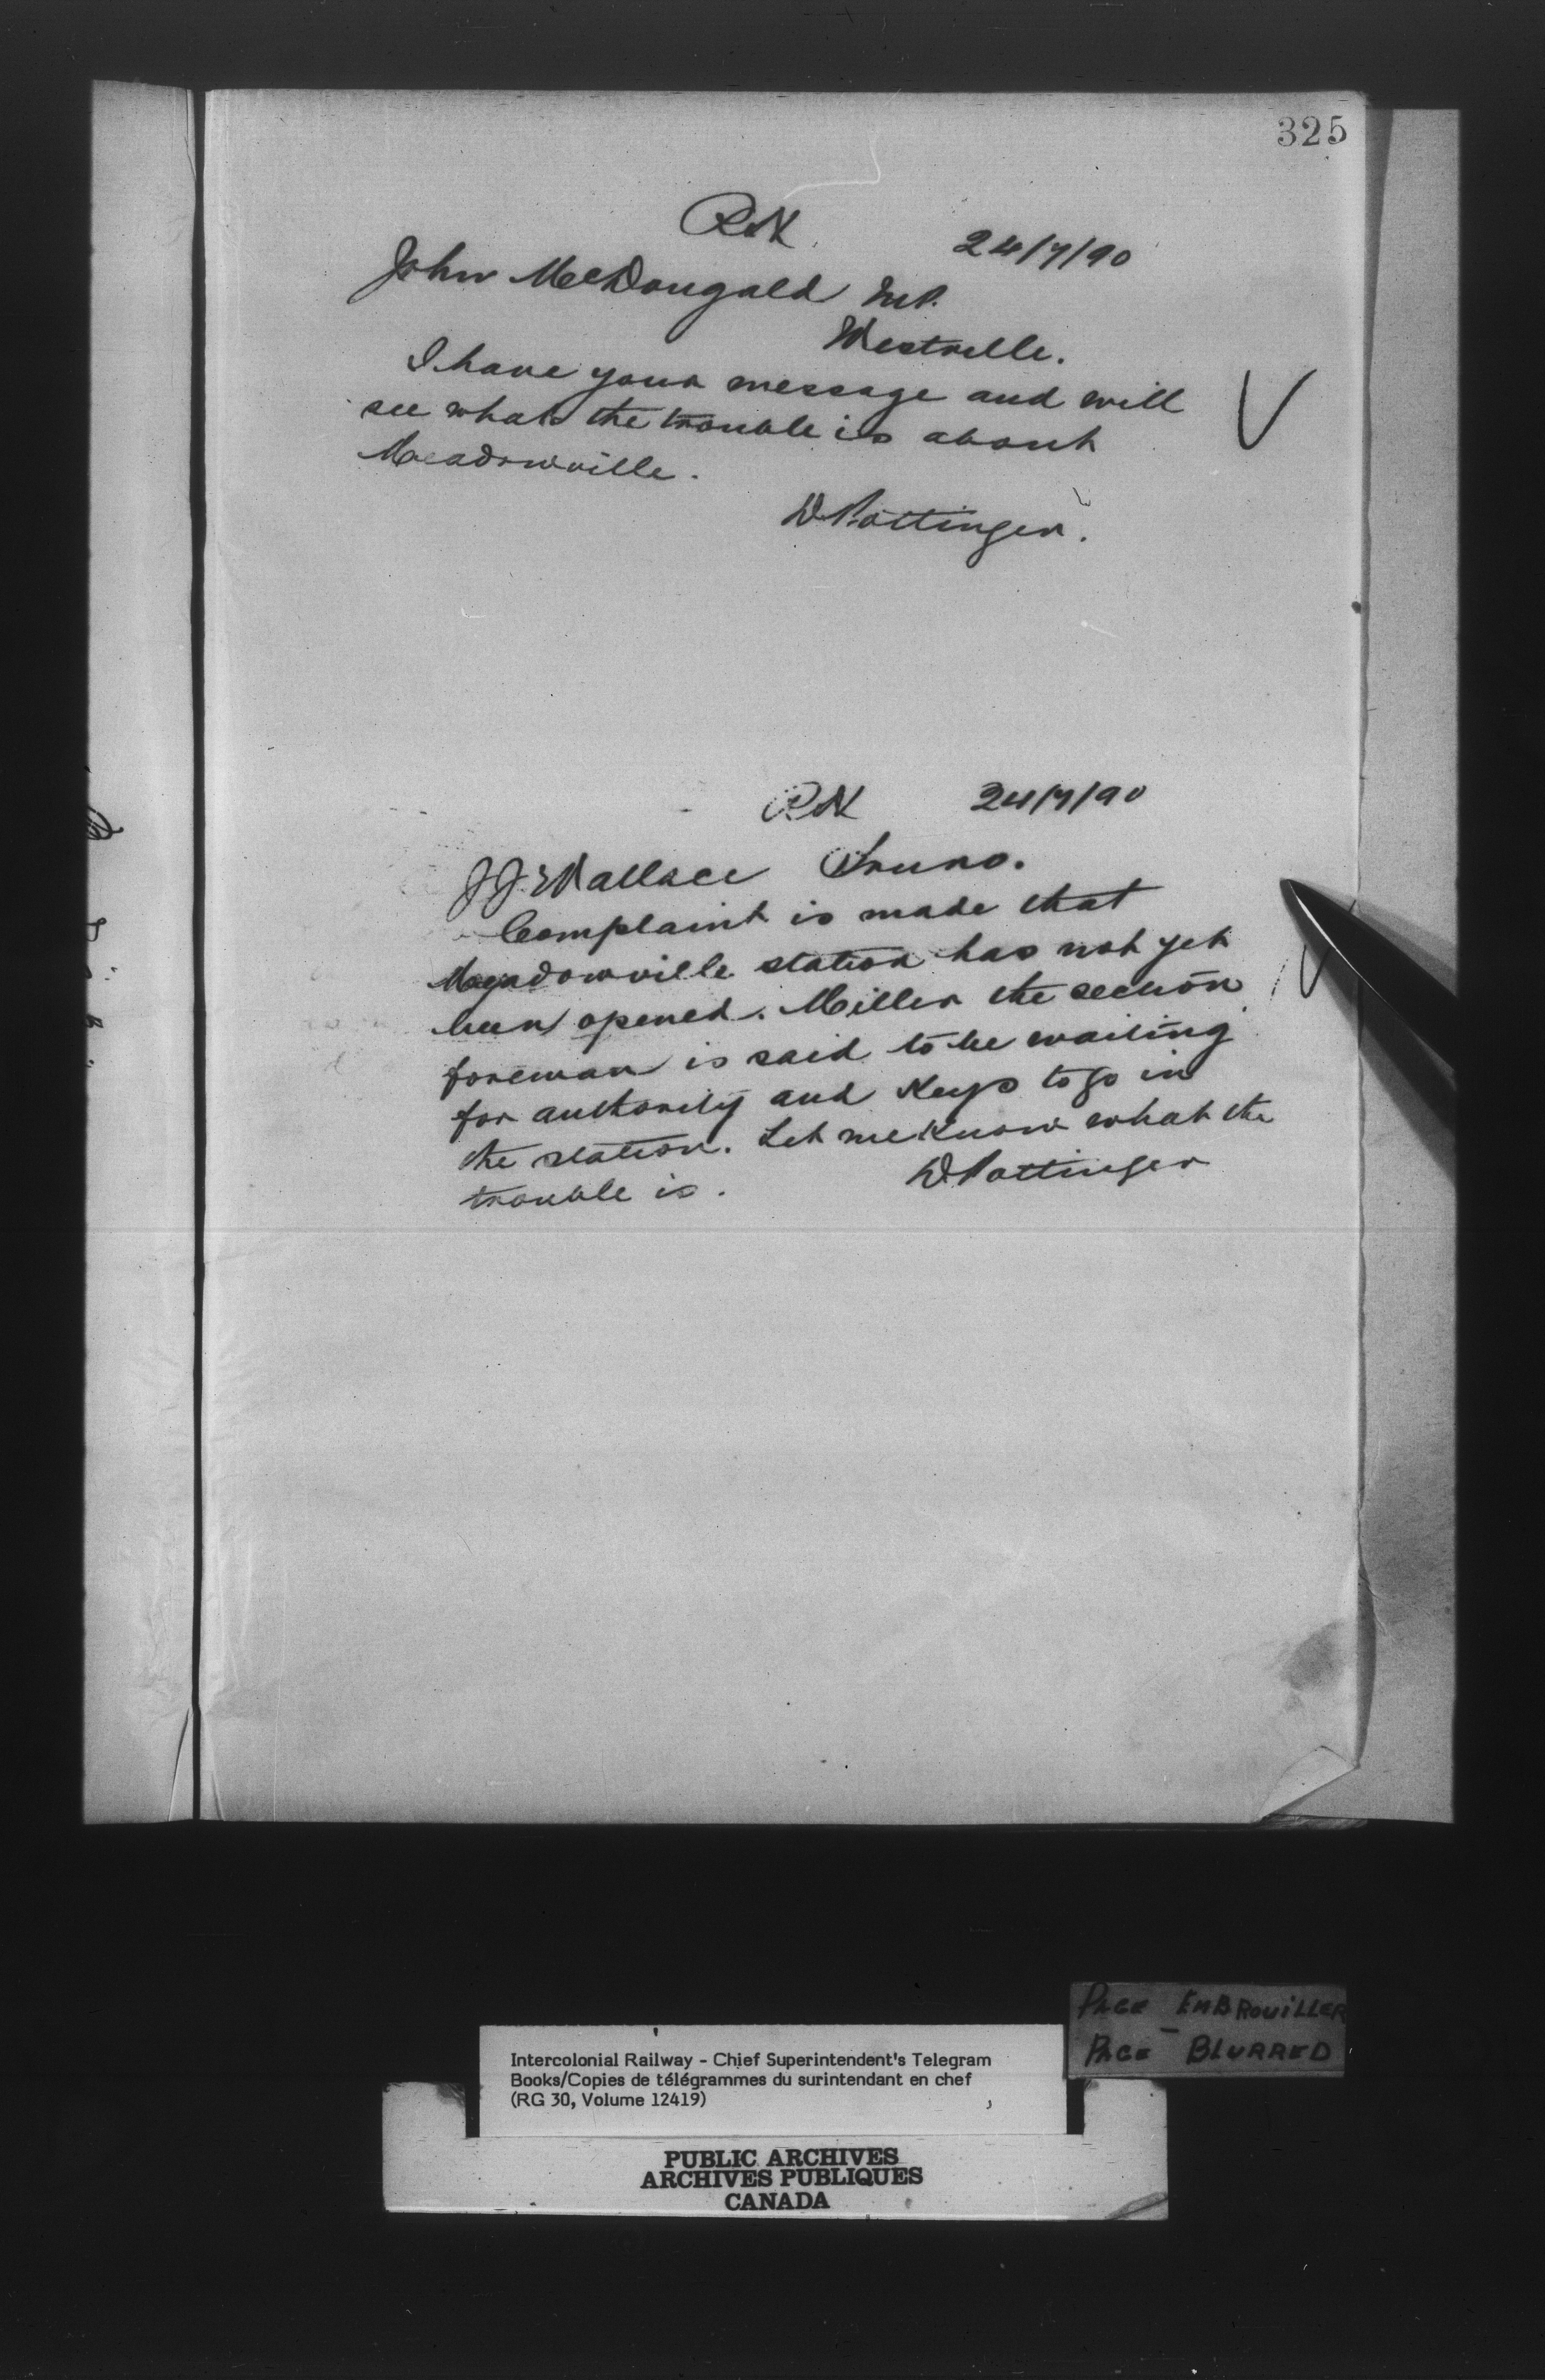 325
RN 24/7/90
John McDougald M.P.
Westville.
I have your message and will
see what the trouble is about
Meadowville.
D Pottinger.
RN 24/7/90
J.J. Wallace Truro.
Complaint is made that
Meadowville station has not yet
been opened. Miller the section
foreman is said to be waiting
for authority and keys to go in
the station. Let me know what the
trouble is.
D Pottinger
PAGE EMBROUILLER
PAGE BLURRED
Intercolonial Railway - Chief Superintendent's Telegram
Books/Copies de télégrammes du surintendant en chef
(RG 30, Volume 12419)
PUBLIC ARCHIVES
ARCHIVES PUBLIQUES
CANADA